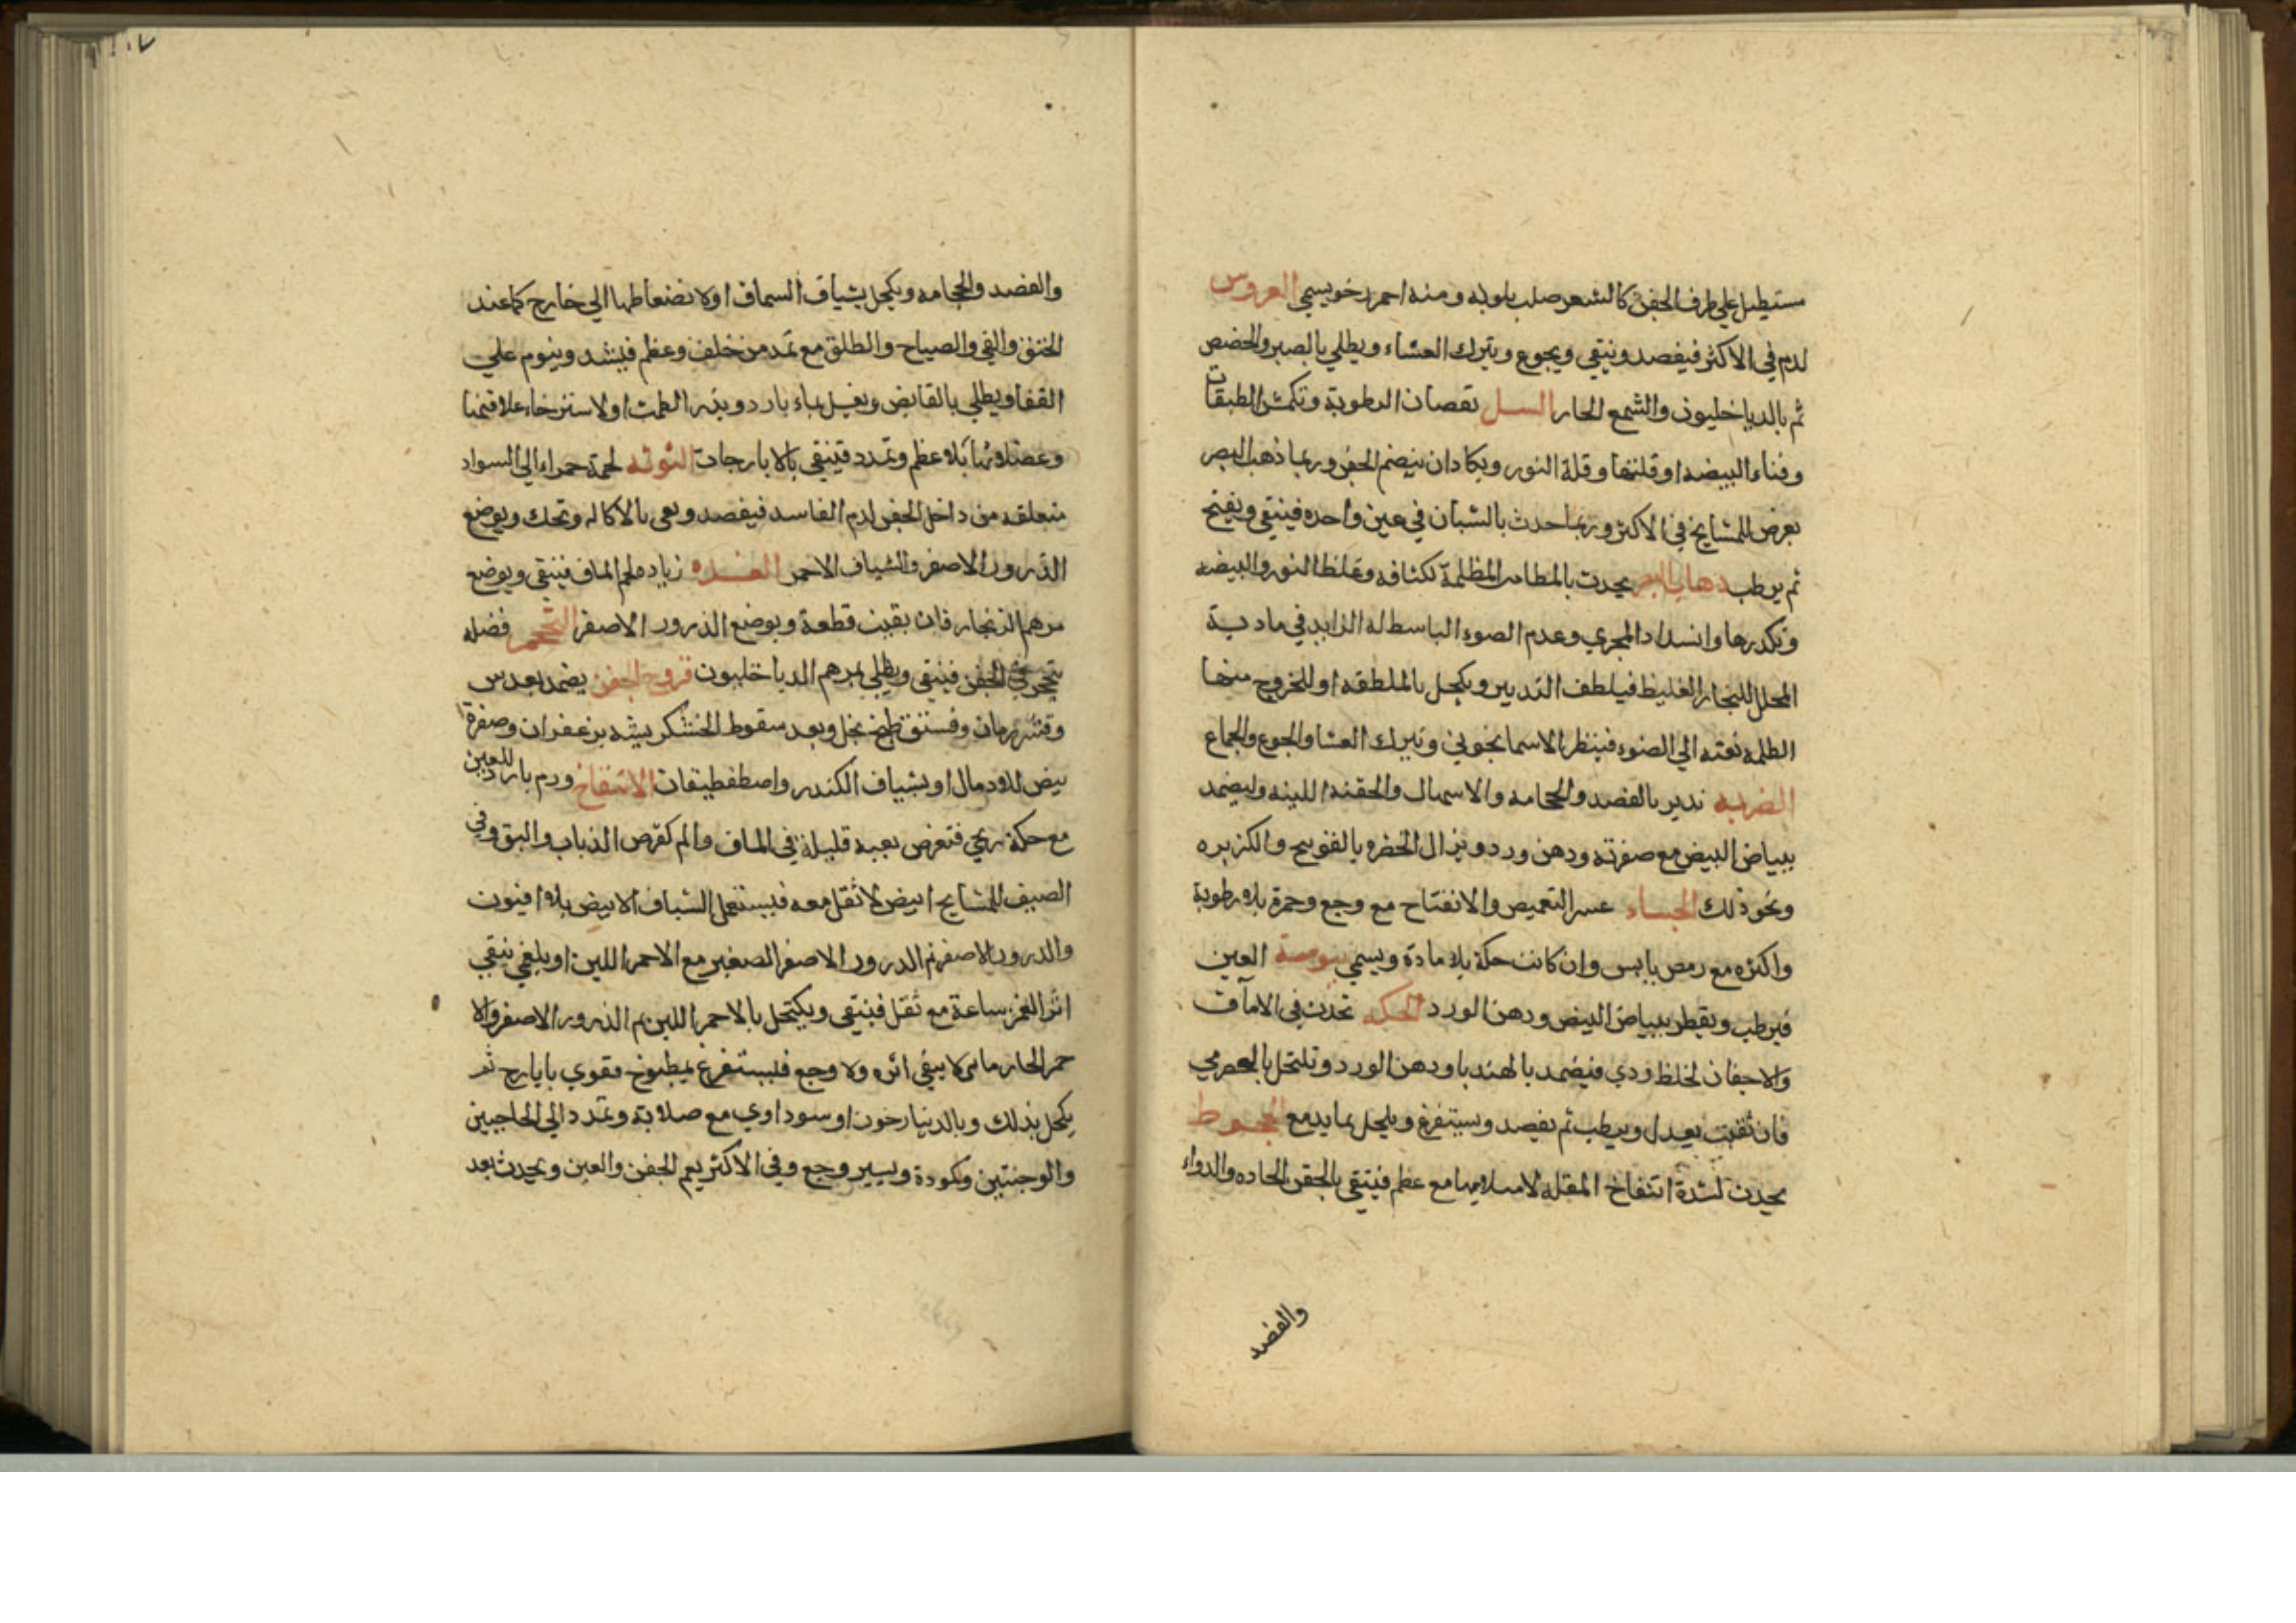 مستطيل علي طرف الجفن كالشعر صلب بلونه ومنه احمر رخو يسمي العروس
لدم في الاكثر فيفصد وينقي ويجوع ويترك العشاء ويطلي بالصبر والحضض
ثم بالدياخليون والشمع الحار السل نقصان الرطوبة وتكمش الطبقات
وفناء البيضه او قلتها وقلة النور ويكاد ان ينضم الجفن وربما ذهب البصر
يعرض للمشايخ في الاكثر وربما حدث بالشبان في عين واحده فينقي ويفتح
ثم يرطب ذهاب البصر يحدث المظلمة لكثافه وغلظ النور والبيضه
وتكدرها وانسداد المجري وعدم الضوء الباسط له الزايد في مادية
المحلل للبخار الغليظ فيلطف التدبير ويكحل بالملطفه او للخروج منها
الظلمه بغته الي الضوء فينظر الاسمانجوني ويترك العشا والجوع والجماع
الضربه تدبر بالفصد والحجامه والاسهال والحقنه اللينه وليضمد
ببياض البيض مع صفرته ودهن ورد ويزال الخضره بالفوتنج والكزبره
ونحو ذلك الجساء عسر التغميض والانفتاح مع وجع وحمرة بلا رطوبة
واكثره مع رمص يابس وان كانت حكة بلا مادة ويسمي يبوسة العين
فيرطب ويقطر ببياض البيض ودهن الورد الحكه تحدث في الامآق
والاجفان لخلط ردي فيضمد بالهندبا ودهن الورد وتكتحل بالحصرمي
فان بقيت يعدل ويرطب ثم يفصد ويستفرغ ويكحل بما يدمع الجحوظ
يحدث لشدة انتفاخ المقله لامتلايها مع عظم فينقي بالحقن الحاده والدواء
والفصد
والفصد والحجامه ويكحل بشياف السماق او لانضغاطها الي خارج كما عند
الخنق والقي والصياح والطلق مع تمدد من خلف وعظم فيشد وينوم علي
القفا ويطلي بالقابض ويغسل بماء بارد ويدر الطمث او لاسترخاء علاقتها
وعضلاتها بلا عظم وتمدد فينقي بالايارجات التوثه لحمة حمراء الي السواد
متعلقه من داخل الجفن لدم الفاسد فيفصد بالاكاله وتحك ويوضع
الذرور الاصفر والشياف الاحمر الغده زيادة لحم الماق فينقي ويوضع
مرهم الزنجار فان بقيت قطعة ويوضع الذرور الاصفر التحجر فضله
تتحجر في الجفن فينقي ويطلي بمرهم الدياخليون قروح الجفن يضمد بعدس
وقشر رمان وفستق طبخ بخل وبعد سقوط الخشكريشه بزعفران وصفرة
بيض او بشياف الكندر واصطفطيقان الانتفاخ ورم بارد للعين
مع حكة ريحي فتعرض بغتة قليلة في الماق والم كقرص الذباب والبق وفي
الصيف للمشايخ ابيض لا ثقل معه فيستعمل الشياف الابيض بلا افيون
والذرور الاصفر ثم الذرور الاصفر الصغير مع الاحمر اللين او بلغمي يبقي
اثر الغمز ساعة مع ثقل فينقي ويكتحل بالاحمر اللين ثم الذرور الاصفر والا
حمر الحار لا يبقي اثره ولا وجع فليستفرغ بمطبوخ مقوي بايارج ثم
يكحل بذلك وبالدينارخون او سوداوي مع صلابة وتمدد الي الحاجبين
والوجنتين وكمودة ويسير وجع وفي الاكثر يعم الجفن والعين ويحدث بعد